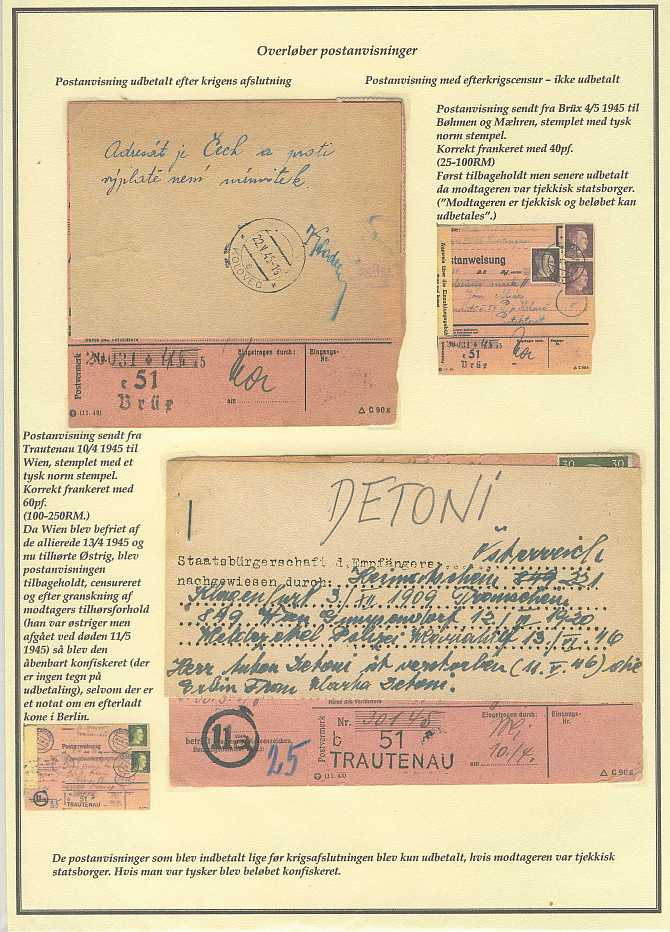 Overløber postanvisninger
Postanvisning udbetalt efter krigens afslutning
Postanvisning med efterkrigscensur – ikke udbetalt
Postanvisning sendt fra Brüx 4/5 1945 til
Bøhmen og Mæhren, stemplet med tysk
norm stempel.
Korrekt frankeret med 40pf.
(25-100RM)
Først tilbageholdt men senere udbetalt
da modtageren var tjekkisk statsborger.
("Modtageren er tjekkisk og beløbet kan
udbetales".)
Adresát je Čech a proti
výplatě není námitek.
KOLOVEČ
22.V.45-15
Postvermerk
Nr.
Eingetragen durch:
Eingangs-
Nr.
c 51
Brüx
am
(11. 43)
△ C 90 a
stanweisung
c 51
Brüx
Postanvisning sendt fra
Trautenau 10/4 1945 til
Wien, stemplet med et
tysk norm stempel.
Korrekt frankeret med
60pf.
(100-250RM.)
Da Wien blev befriet af
de allierede 13/4 1945 og
nu tilhørte Østrig, blev
postanvisningen
tilbageholdt, censureret
og efter granskning af
modtagers tilhørsforhold
(han var østriger men
afgået ved døden 11/5
1945) så blev den
åbenbart konfiskeret (der
er ingen tegn på
udbetaling), selvom der er
et notat om en efterladt
kone i Berlin.
30 30
DETONI
Österreich
Staatsbürgerschaft d. Empfängers
nachgewiesen durch: Heimatschein 849 231
Klagenfurt 3./XII. 1909
849 Wien Gumpendorf 12./VI 1920
Meldezettel Polizei 13./VI. 46
Herr Anton Detoni ist verstorben (11. V. 46) die
Erbin Frau Detoni.
11a
25
Postvermerk
Nr. 201 45
Eingetragen durch:
Eingangs-
Nr.
c 51
TRAUTENAU
am 10./4.
(11. 43)
△ C 90 a
Postanweisung
51
TRAUTENAU
De postanvisninger som blev indbetalt lige før krigsafslutningen blev kun udbetalt, hvis modtageren var tjekkisk
statsborger. Hvis man var tysker blev beløbet konfiskeret.